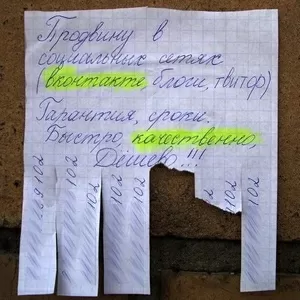 Продвину в
социальных сетях
(вконтакте, блоги, твитор)
Гарантия, сроки.
Быстро, качественно,
Дешево!!!
102
102
102
102
102
102